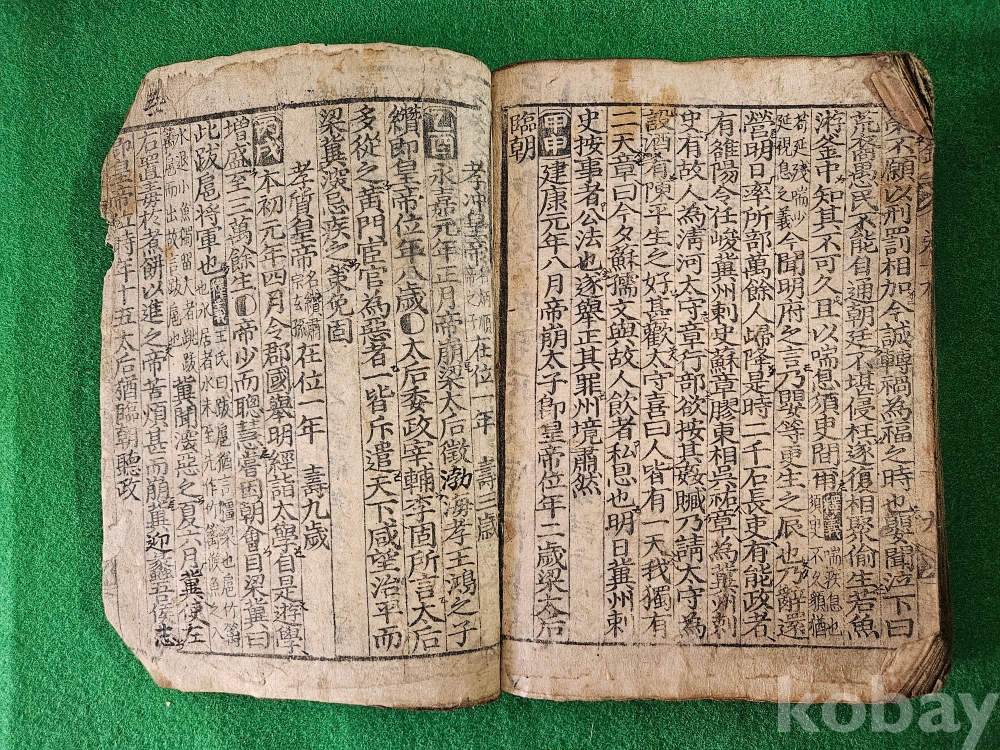 榮不願以刑罰相加今誠轉禍為福之時也嬰聞泣下曰
荒裔愚民不能自通朝廷不堪侵枉遂復相聚偷生若魚
游釜中知其不可久且以喘息須臾間爾釋義喘疾息也須臾不久猶
苟延殘喘少延視息之義今聞明府之言乃嬰等更生之辰也乃辭還
營明日率所部萬餘人歸降是時二千石長吏有能政者
有雒陽令任峻冀州刺史蘇章膠東相吳祐章為冀州刺
史有故人為清河太守章行部欲按其姦贓乃請太守為
設酒肴陳平生之好甚歡太守喜曰人皆有一天我獨有
二天章曰今夕蘇孺文與故人飲者私恩也明日冀州刺
史按事者公法也遂舉正其罪州境肅然
甲申建康元年八月帝崩太子即皇帝位年二歲梁太后
臨朝
孝冲皇帝在位一年 壽三歲
乙酉永嘉元年正月帝崩梁太后徵渤海孝王鴻之子
纘即皇帝位年八歲○太后委政宰輔李固所言太后
多從之黃門宦官為惡者一皆斥遣天下咸望治平而
梁冀深忌疾之策免固
孝質皇帝名纘在位一年 壽九歲
丙戌本初元年四月令郡國舉明經詣太學自是遊學
增盛至三萬餘生○帝少而聰慧嘗因朝會目梁冀曰
此跋扈將軍也釋義王氏曰跋扈猶言彊梁也扈竹籬
也水居者水未至先作竹籬候魚之入水退小魚獨留大者跳跋籬扈而出故言跋扈也冀聞深惡之夏六月冀使左
右置毒於煮餅以進之帝苦煩甚而崩冀迎蠡吾侯志
即皇帝位時年十五太后猶臨朝聽政
kobay